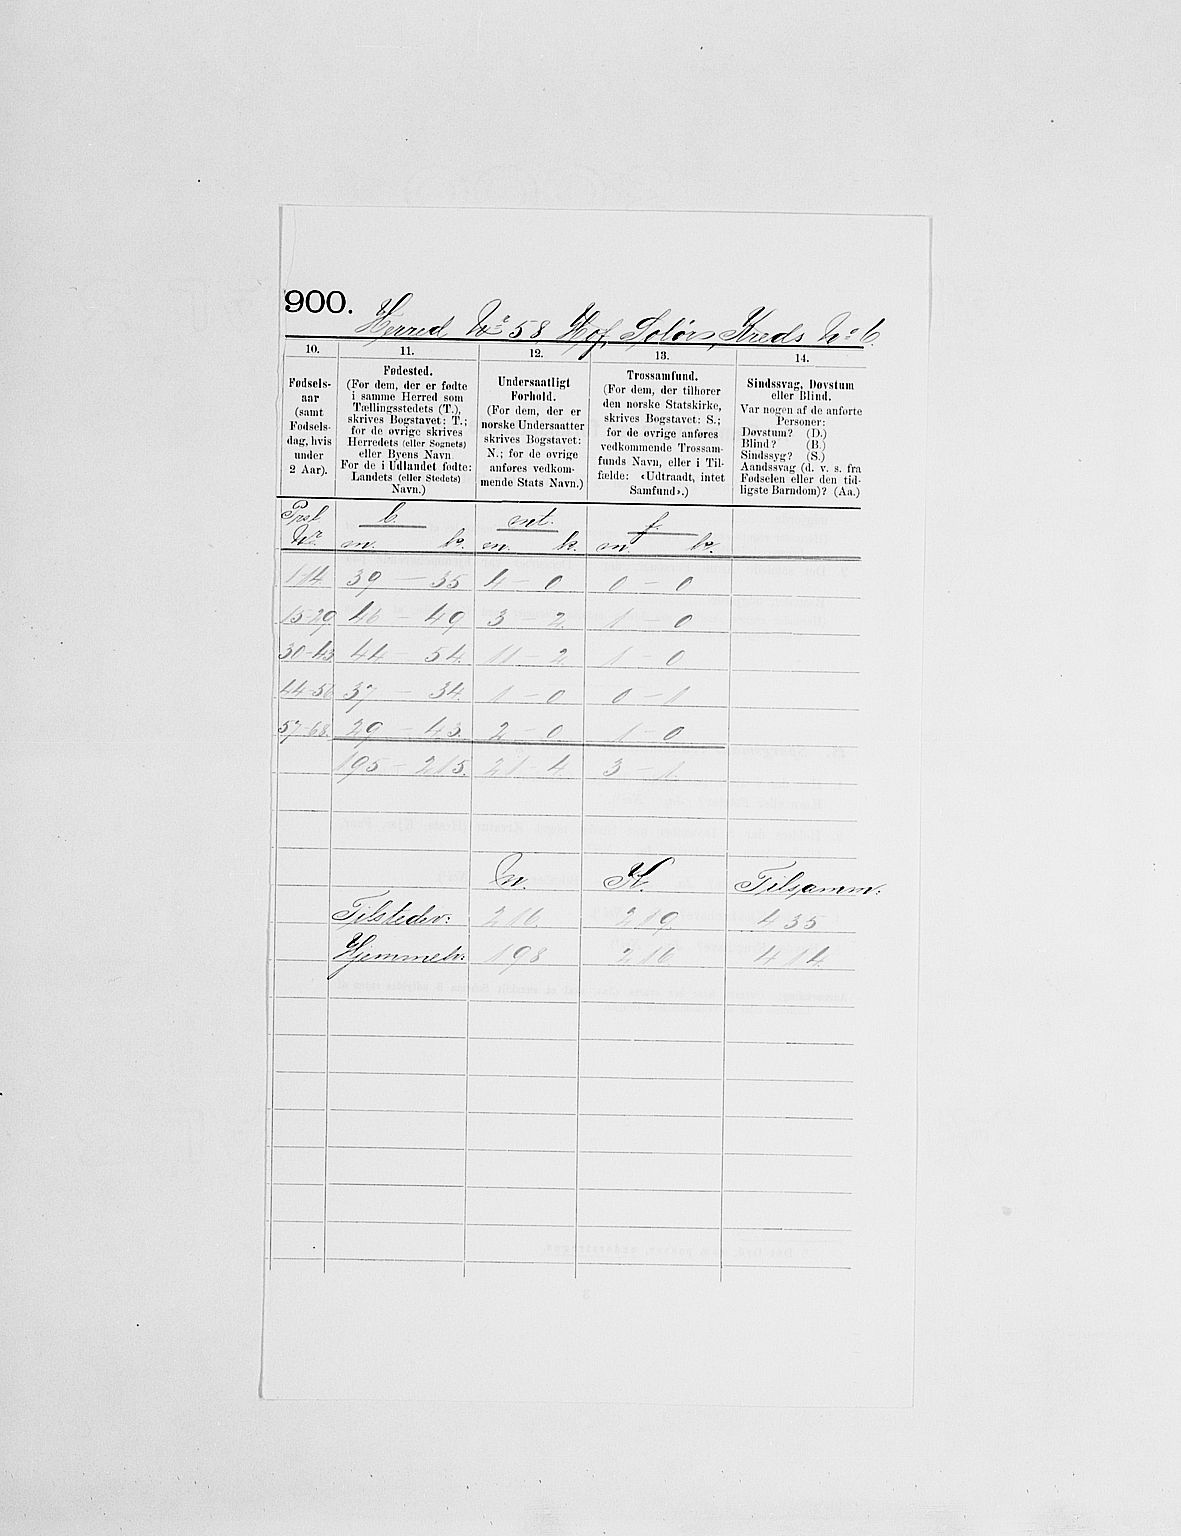 900.
Herred No 58 Hof, Solørs, Kreds No 6.
10.
Fødsels-
aar
(samt
Fødsels-
dag, hvis
under
2 Aar).
11.
Fødested.
(For dem, der er fødte
i samme Herred som
Tællingsstedets (T.),
skrives Bogstavet: T.;
for de øvrige skrives
Herredets (eller Sognets)
eller Byens Navn
For de i Udlandet fødte:
Landets (eller Stedets)
Navn.)
12.
Undersaatligt
Forhold.
(For dem, der er
norske Undersaatter
skrives Bogstavet:
N.; for de øvrige
anføres vedkom-
mende Stats Navn.)
13.
Trossamfund.
(For dem, der tilhører
den norske Statskirke,
skrives Bogstavet: S.;
for de øvrige anføres
vedkommende Trossam-
funds Navn, eller i Til-
fælde: «Udtraadt, intet
Samfund».)
14.
Sindssvag, Døvstum
eller Blind.
Var nogen af de anførte
Personer:
Døvstum? (D.)
Blind? (B.)
Sindssyg? (S.)
Aandssvag (d. v. s. fra
Fødselen eller den tid-
ligste Barndom)? (Aa.)
Psl. b. mt. f.
No m. k. m. k. m. k.
1-14 39 — 35 4 — 0 0 — 0
15-29 46 — 49 3 — 2 1 — 0
30-43 44 — 54 11 — 2 1 — 0
44-56 37 — 34 1 — 0 0 — 1
57-68 29 — 43 2 — 0 1 — 0
195 — 215 21 — 4 3 — 1
M. K. Tilsamm.
Tilstedev: 216 219 435
Hjemmeh: 198 216 414